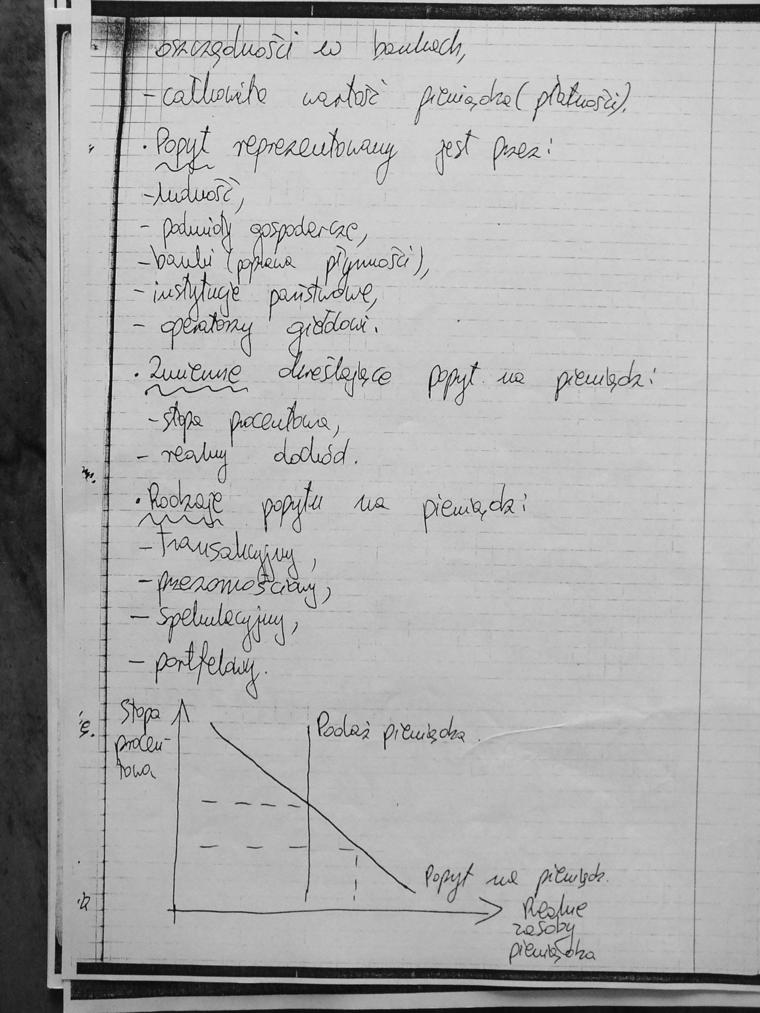 oszczędności w bankach,
- całkowita wartość pieniądza (płatności).
· Popyt reprezentowany jest przez:
- ludność,
- podmioty gospodarcze,
- banki (poprawa płynności),
- instytucje państwowe,
- operatorzy giełdowi.
· Zmienne określające popyt na pieniądz:
- stopa procentowa,
- realny dochód.
· Rodzaje popytu na pieniądz:
- transakcyjny,
- przezornościowy,
- spekulacyjny,
- portfelowy.
Stopa
procen-
towa
Podaż pieniądza.
Popyt na pieniądz.
Realne
zasoby
pieniądza